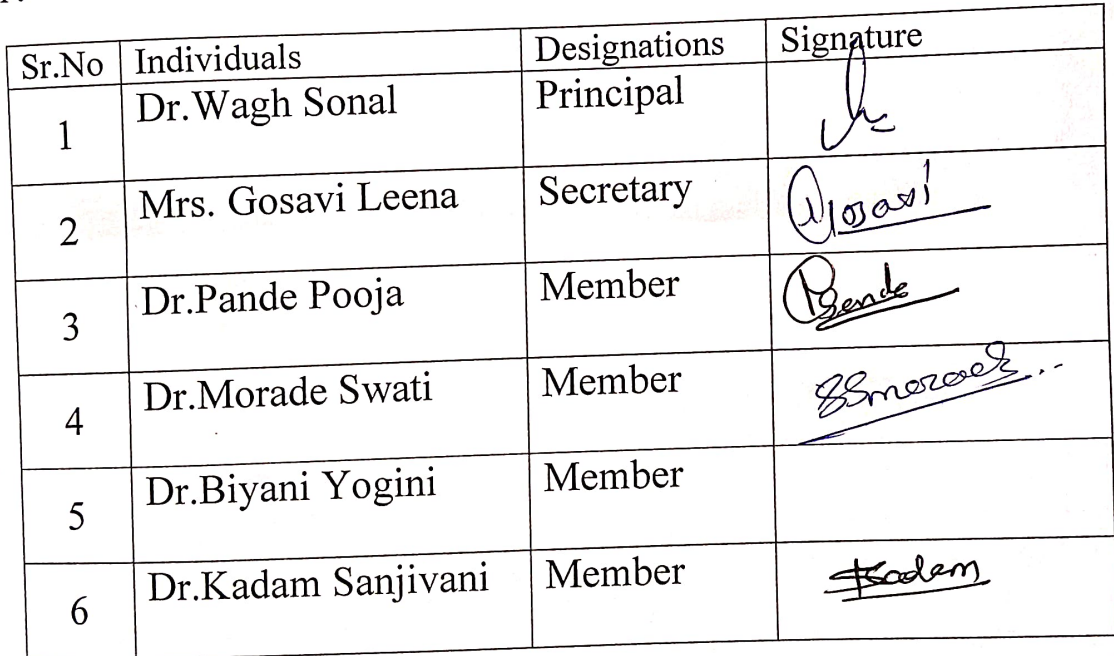 Sr.No Individuals Designations Signature
1 Dr.Wagh Sonal Principal
2 Mrs. Gosavi Leena Secretary Gosavi
3 Dr.Pande Pooja Member Pande
4 Dr.Morade Swati Member SSmorade
5 Dr.Biyani Yogini Member
6 Dr.Kadam Sanjivani Member Kadam